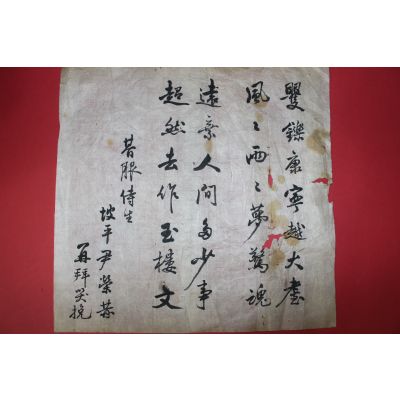 矍鑠康寧越大耋
風〻雨〻夢驚魂
遠棄人間多少事
超然去作玉樓文
昔服侍生
坡平尹榮
再拜哭挽